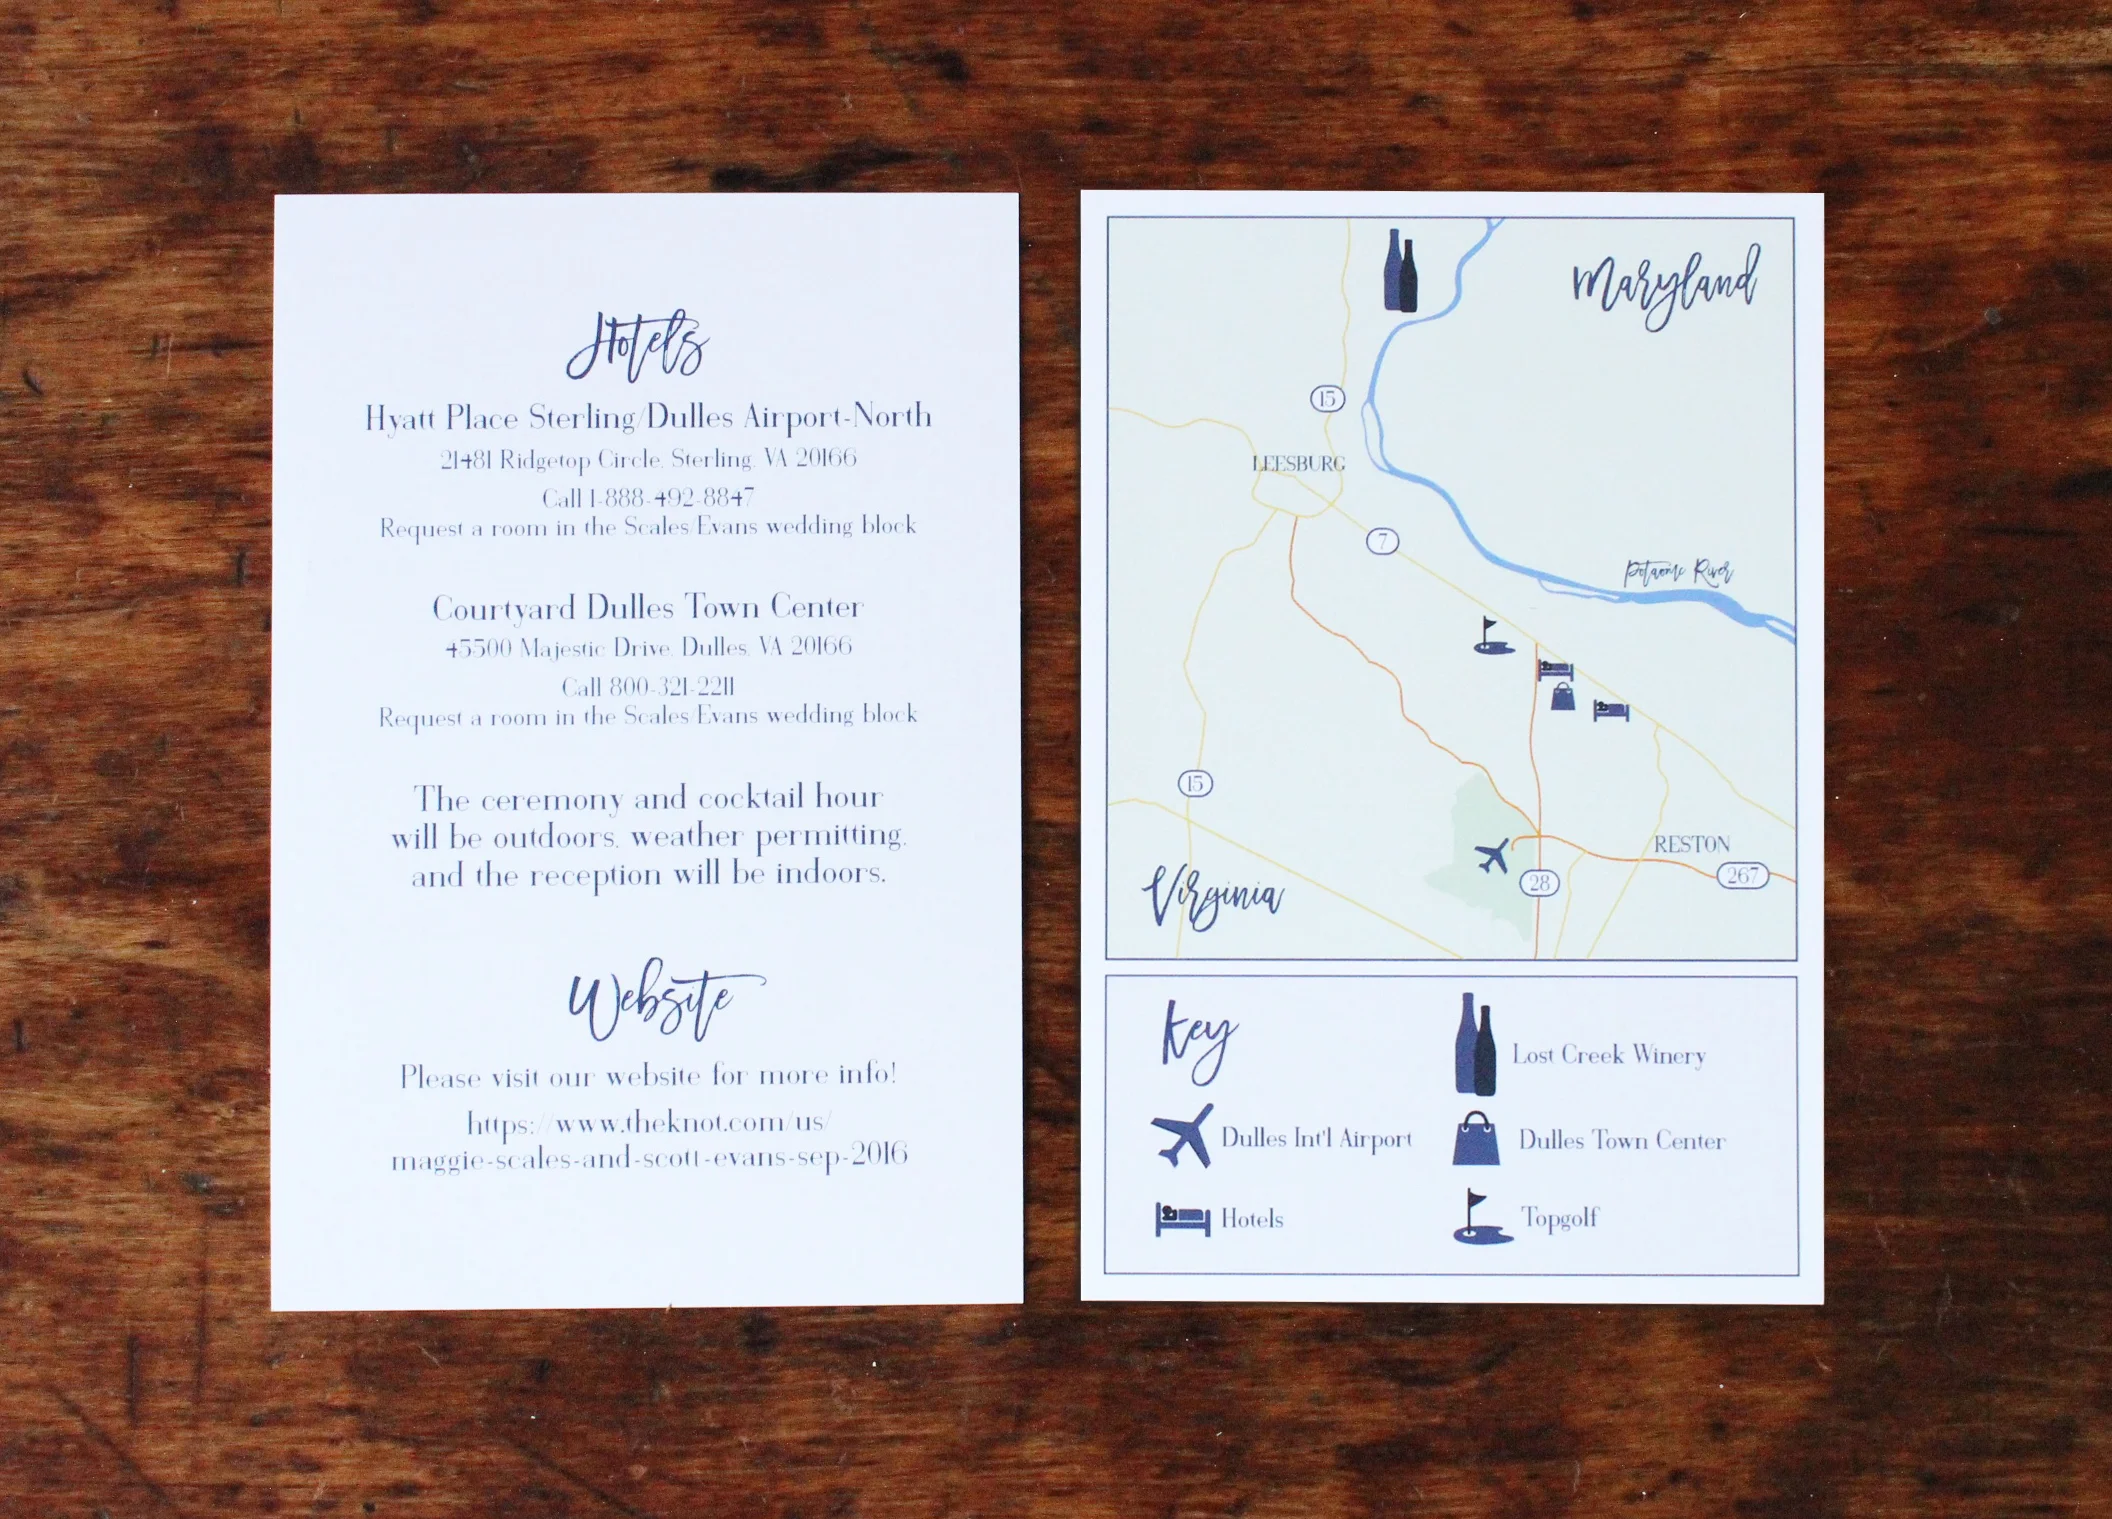 Hotels
Hyatt Place Sterling/Dulles Airport-North
21481 Ridgetop Circle, Sterling, VA 20166
Call 1-888-492-8847
Request a room in the Scales/Evans wedding block
Courtyard Dulles Town Center
45500 Majestic Drive, Dulles, VA 20166
Call 800-321-2211
Request a room in the Scales/Evans wedding block
The ceremony and cocktail hour
will be outdoors, weather permitting,
and the reception will be indoors.
Website
Please visit our website for more info!
https://www.theknot.com/us/
maggie-scales-and-scott-evans-sep-2016
Maryland
15
LEESBURG
7
Potaomc River
15
RESTON
267
28
Virginia
Key
Lost Creek Winery
Dulles Int'l Airport
Dulles Town Center
Hotels
Topgolf